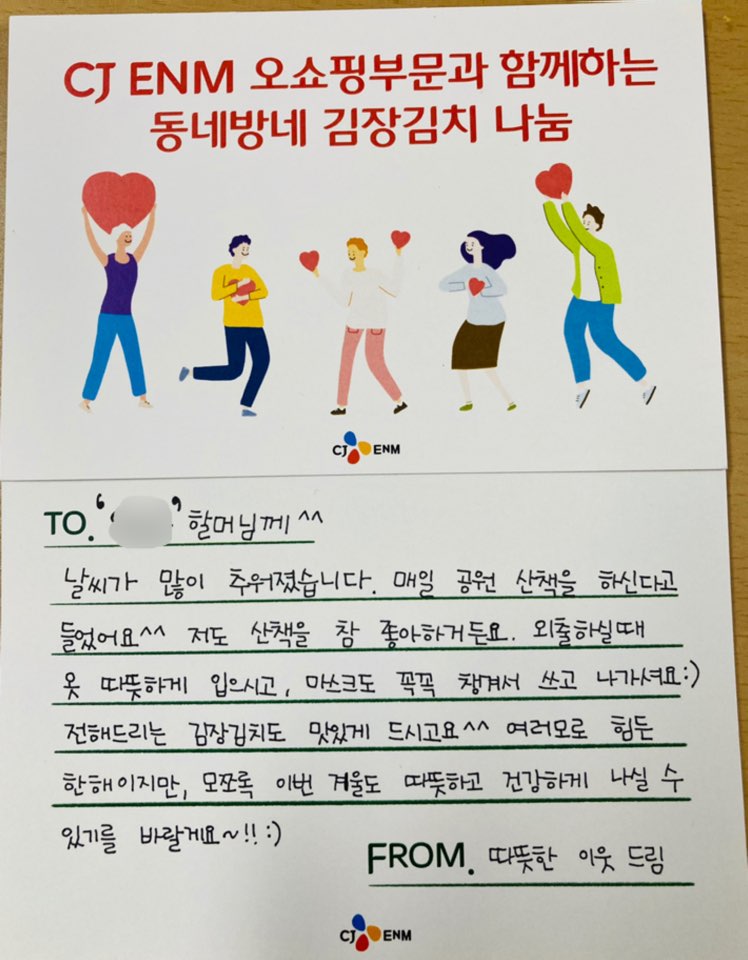 CJ ENM 오쇼핑부문과 함께하는
동네방네 김장김치 나눔
CJ ENM
TO. ' ' 할머님께^^
날씨가 많이 추워졌습니다. 매일 공원 산책을 하신다고
들었어요^^ 저도 산책을 참 좋아하거든요. 외출하실때
옷 따뜻하게 입으시고, 마스크도 꼭꼭 챙겨서 쓰고 나가셔요:)
전해드리는 김장김치도 맛있게 드시고요^^ 여러모로 힘든
한해이지만, 모쪼록 이번 겨울도 따뜻하고 건강하게 나실 수
있기를 바랄게요~!! :)
FROM. 따뜻한 이웃 드림
CJ ENM